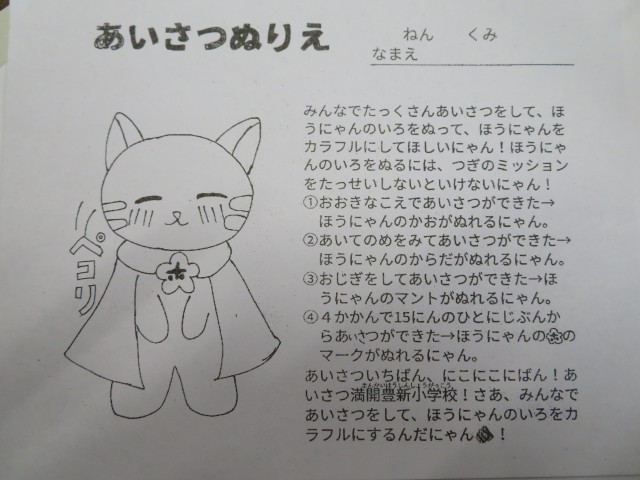 あいさつぬりえ
ねん くみ
なまえ
みんなでたっくさんあいさつをして、ほ
うにゃんのいろをぬって、ほうにゃんを
カラフルにしてほしいにゃん！ほうにゃ
んのいろをぬるには、つぎのミッション
をたっせいしないといけないにゃん！
①おおきなこえであいさつができた→
ほうにゃんのかおがぬれるにゃん。
②あいてのめをみてあいさつができた→
ほうにゃんのからだがぬれるにゃん。
③おじぎをしてあいさつができた→ほ
うにゃんのマントがぬれるにゃん。
④４かかんで15にんのひとにじぶんか
らあいさつができた→ほうにゃんのの
マークがぬれるにゃん。
あいさついちばん、にこにこにばん！あ
いさつ満開豊新小学校！さあ、みんなで
あいさつをして、ほうにゃんのいろをカ
ラフルにするんだにゃん！
ペコリ